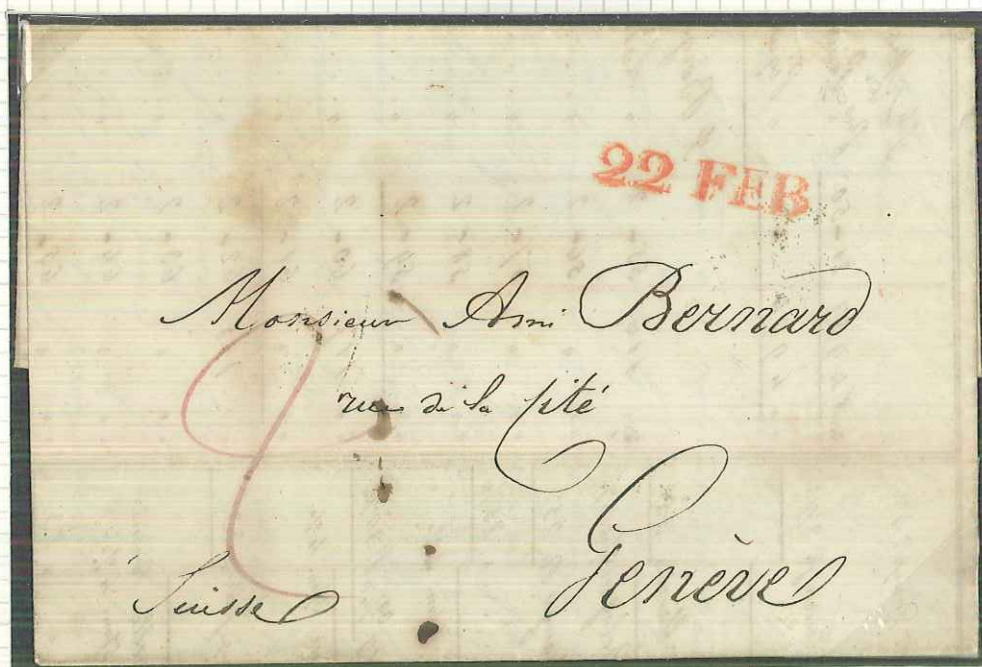 22 FEB
Monsieur Ami Bernard
rue de la Cité
Genève
Suisse